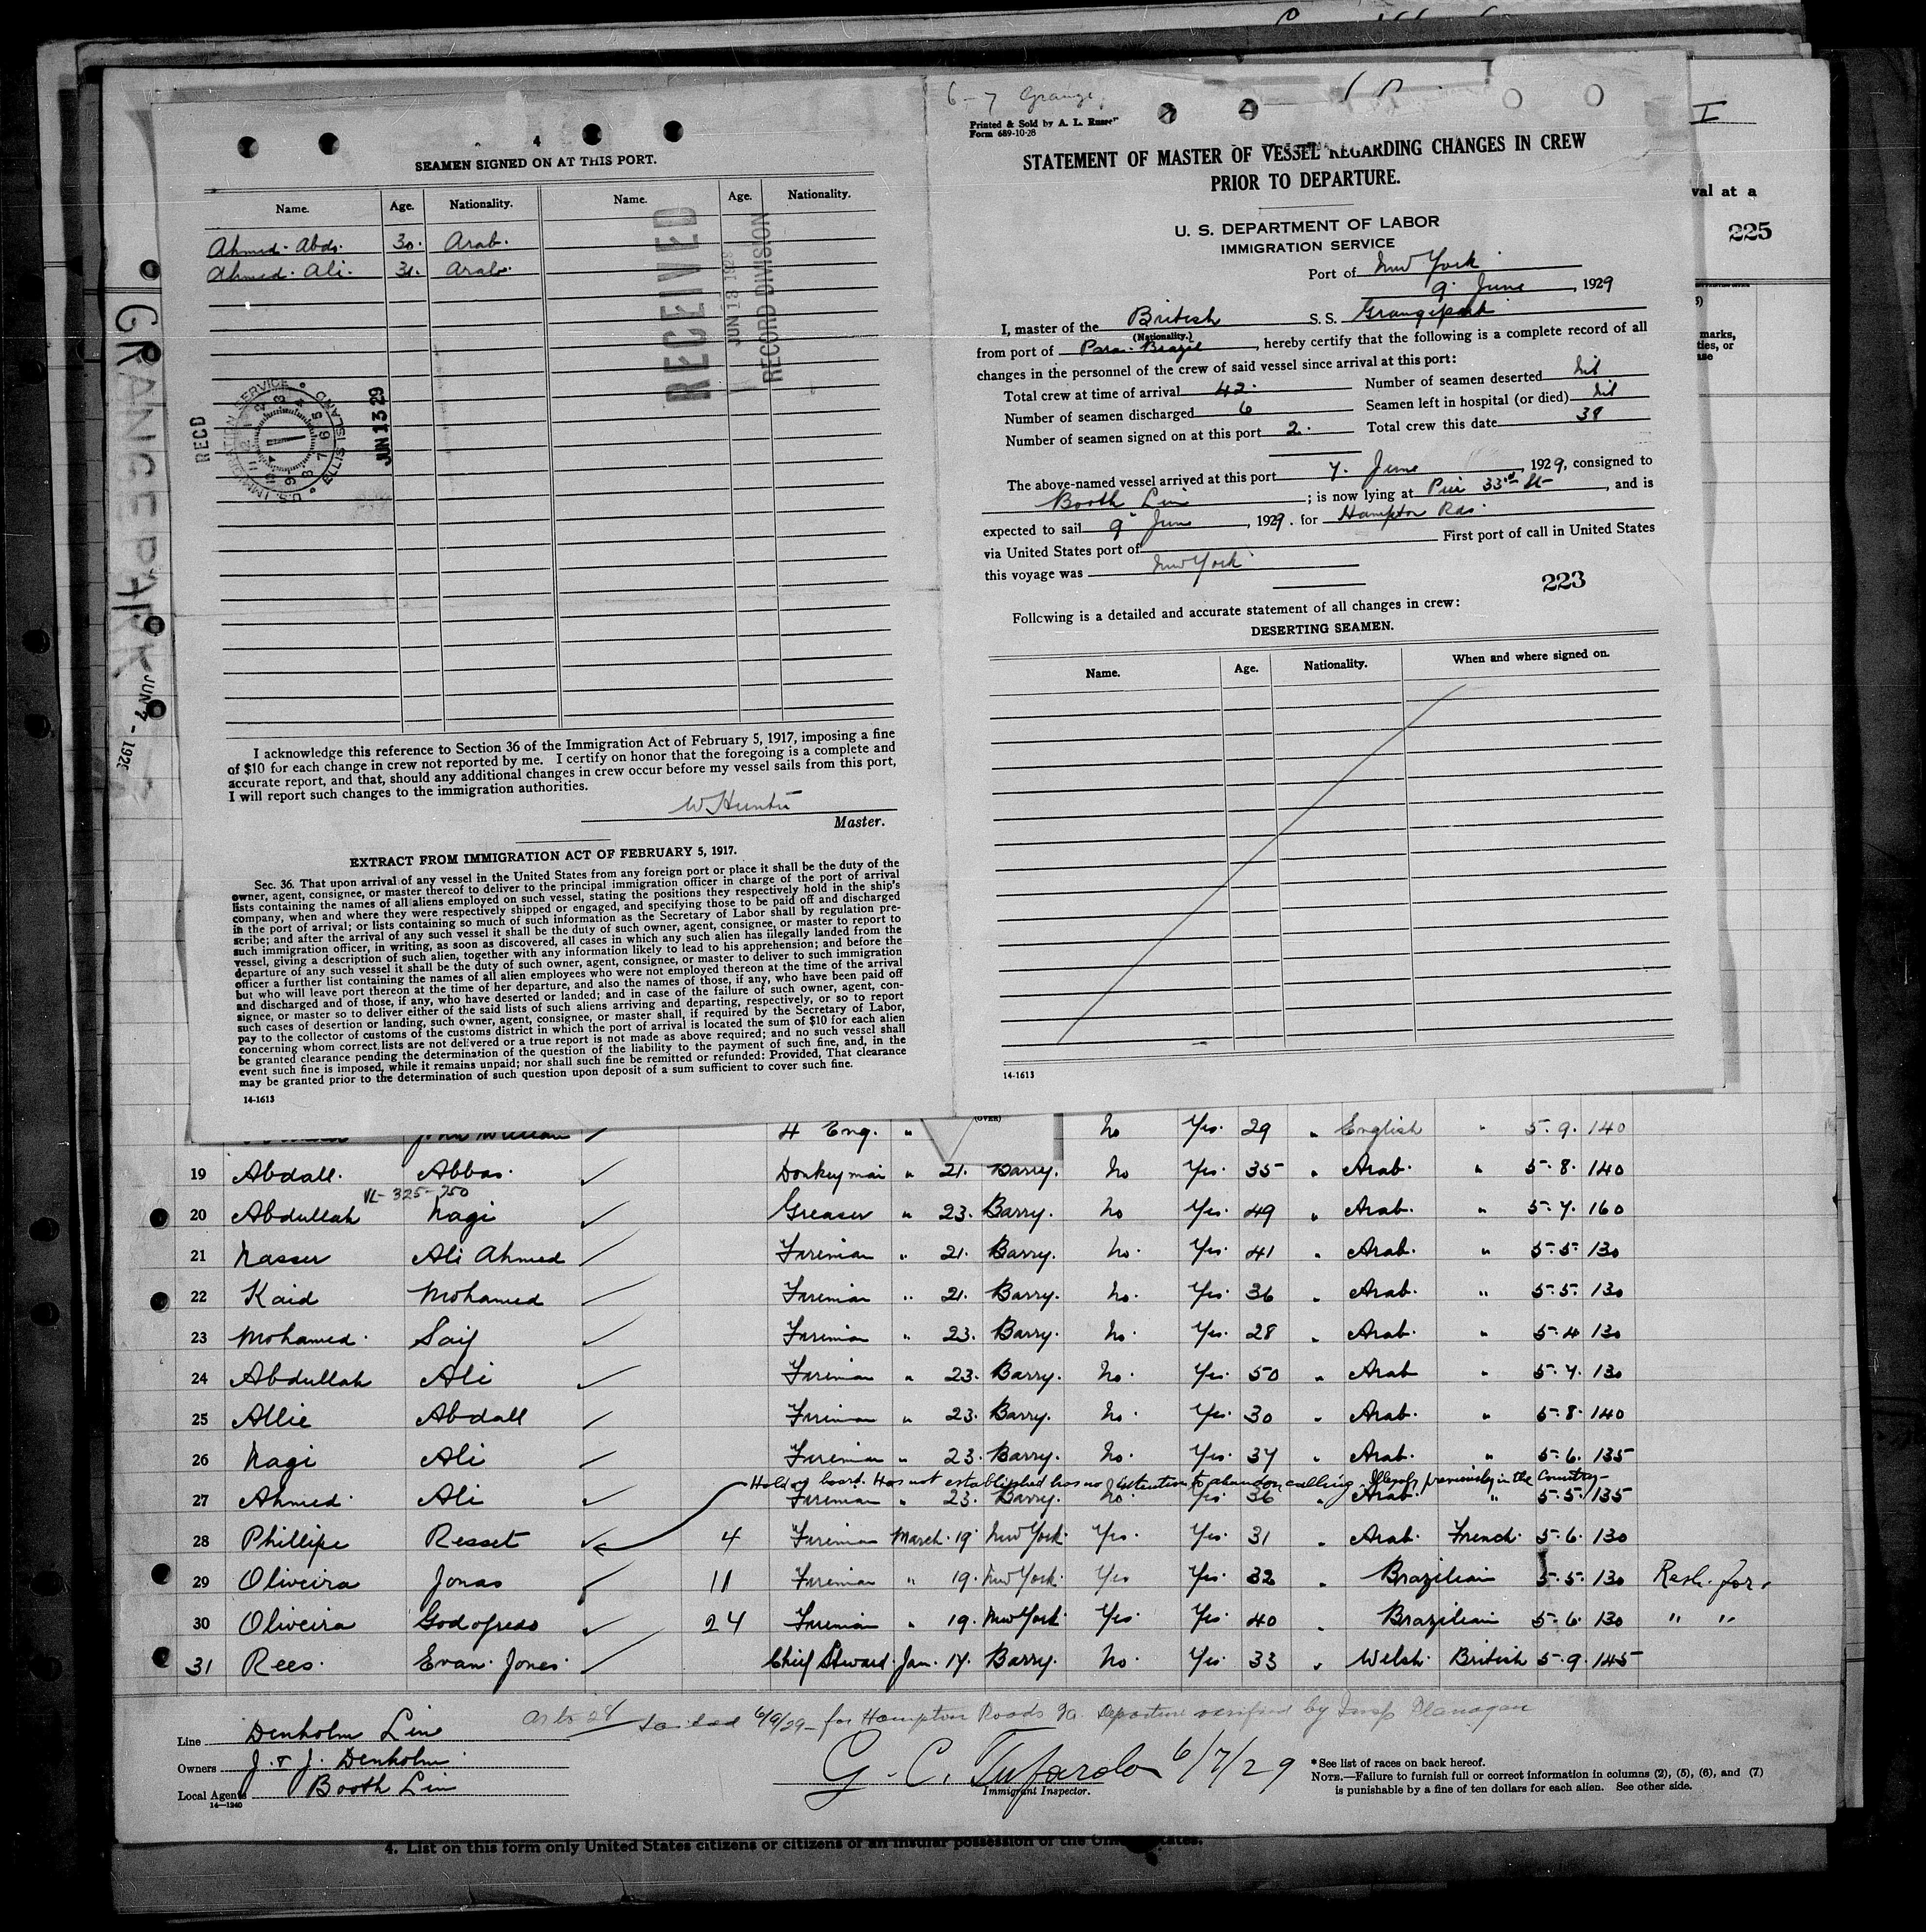 4
SEAMEN SIGNED ON AT THIS PORT.
Name. Age. Nationality. Name. Age. Nationality.
Ahmed. Abdo. 30. Arab.
Ahmed. Ali. 31. Arab.
RECEIVED
JUN 13 1929
RECORD DIVISION
RECD
U.S. IMMIGRATION SERVICE ELLIS ISLAND
JUN 13 29
GRANGEPARK
JUN 7 - 1929
I acknowledge this reference to Section 36 of the Immigration Act of February 5, 1917, imposing a fine
of $10 for each change in crew not reported by me. I certify on honor that the foregoing is a complete and
accurate report, and that, should any additional changes in crew occur before my vessel sails from this port,
I will report such changes to the immigration authorities.
W Hunter
Master.
EXTRACT FROM IMMIGRATION ACT OF FEBRUARY 5, 1917.
Sec. 36. That upon arrival of any vessel in the United States from any foreign port or place it shall be the duty of the
owner, agent, consignee, or master thereof to deliver to the principal immigration officer in charge of the port of arrival
lists containing the names of all aliens employed on such vessel, stating the positions they respectively hold in the ship's
company, when and where they were respectively shipped or engaged, and specifying those to be paid off and discharged
in the port of arrival; or lists containing so much of such information as the Secretary of Labor shall by regulation pre-
scribe; and after the arrival of any such vessel it shall be the duty of such owner, agent, consignee, or master to report to
such immigration officer, in writing, as soon as discovered, all cases in which any such alien has illegally landed from the
vessel, giving a description of such alien, together with any information likely to lead to his apprehension; and before the
departure of any such vessel it shall be the duty of such owner, agent, consignee, or master to deliver to such immigration
officer a further list containing the names of all alien employees who were not employed thereon at the time of the arrival
but who will leave port thereon at the time of her departure, and also the names of those, if any, who have been paid off
and discharged and of those, if any, who have deserted or landed; and in case of the failure of such owner, agent, con-
signee, or master so to deliver either of the said lists of such aliens arriving and departing, respectively, or so to report
such cases of desertion or landing, such owner, agent, consignee, or master shall, if required by the Secretary of Labor,
pay to the collector of customs of the customs district in which the port of arrival is located the sum of $10 for each alien
concerning whom correct lists are not delivered or a true report is not made as above required; and no such vessel shall
be granted clearance pending the determination of the question of the liability to the payment of such fine, and, in the
event such fine is imposed, while it remains unpaid; nor shall such fine be remitted or refunded: Provided, That clearance
may be granted prior to the determination of such question upon deposit of a sum sufficient to cover such fine.
14-1613
6-7 Grange
Printed & Sold by A. L.
Form 689-10-28
STATEMENT OF MASTER OF VESSEL REGARDING CHANGES IN CREW
PRIOR TO DEPARTURE.
U. S. DEPARTMENT OF LABOR
IMMIGRATION SERVICE
Port of New York
9. June, 1929
I, master of the British S. S. Grangepark
(Nationality.)
from port of Para. Brazil, hereby certify that the following is a complete record of all
changes in the personnel of the crew of said vessel since arrival at this port:
Total crew at time of arrival 42. Number of seamen deserted Nil
Number of seamen discharged 6 Seamen left in hospital (or died) Nil
Number of seamen signed on at this port 2. Total crew this date 38
The above-named vessel arrived at this port 7. June, 1929, consigned to
Booth Line; is now lying at Pier 33rd St, and is
expected to sail 9 June, 1929. for Hampton Rds.
via United States port of First port of call in United States
this voyage was New York
223
Following is a detailed and accurate statement of all changes in crew:
DESERTING SEAMEN.
Name. Age. Nationality. When and where signed on.
14-1613
I
val at a
225
marks,
ties, or
(OVER)
4 Eng. " No Yes. 29 " English " 5. 9. 140
19 Abdall. Abbas. Donkeyman " 21. Barry. No Yes. 35 " Arab. " 5. 8. 140
VL-325-750
20 Abdullah Nagi Greaser " 23. Barry. No Yes. 49 " Arab. " 5. 7. 160
21 Nasser Ali Ahmed Fireman " 21. Barry. No. Yes. 41 " Arab. " 5. 5. 130
22 Kaid Mohamed Fireman " 21. Barry. No. Yes. 36 " Arab. " 5. 5. 130
23 Mohamed. Saif Fireman " 23. Barry. No. Yes. 28 " Arab. " 5. 4 130
24 Abdullah Ali Fireman " 23. Barry. No. Yes. 50 " Arab " 5. 7. 130
25 Allie Abdall Fireman " 23. Barry. No. Yes. 30 " Arab. " 5. 8. 140
26 Nagi Ali Fireman " 23. Barry. No. Yes. 37 " Arab. " 5. 6. 135
Hold on board. Has not established has no intention to abandon calling. Illegally previously in the country
27 Ahmed. Ali Fireman " 23. Barry. No. Yes 36 " Arab. " 5. 5. 135
28 Phillipe Resset 4 Fireman March. 19 New York. Yes. Yes. 31 " Arab. French. 5. 6. 130
29 Oliveira Jonas 11 Fireman " 19. New York. Yes Yes. 32 " Brazilian 5. 5. 130 Resh. for.
30 Oliveira Godofredo 24 Fireman " 19. New York. Yes. Yes. 40 " Brazilian 5. 6. 130 " "
31 Rees. Evan. Jones. Chief Steward. Jan. 17. Barry. No. Yes. 33 " Welsh. British 5. 9. 145
As to 28 Sailed 6/9/29 - for Hampton Roads Va. Departure verified by Insp Flanagan
Line Denholm Line
Owners J. & J. Denholm.
Local Agents Booth Line
14-1240
G. C. Tufarolo 6/7/29
Immigrant Inspector.
*See list of races on back hereof.
NOTE.—Failure to furnish full or correct information in columns (2), (5), (6), and (7)
is punishable by a fine of ten dollars for each alien. See other side.
4. List on this form only United States citizens or citizens of an insular possession of the United States.